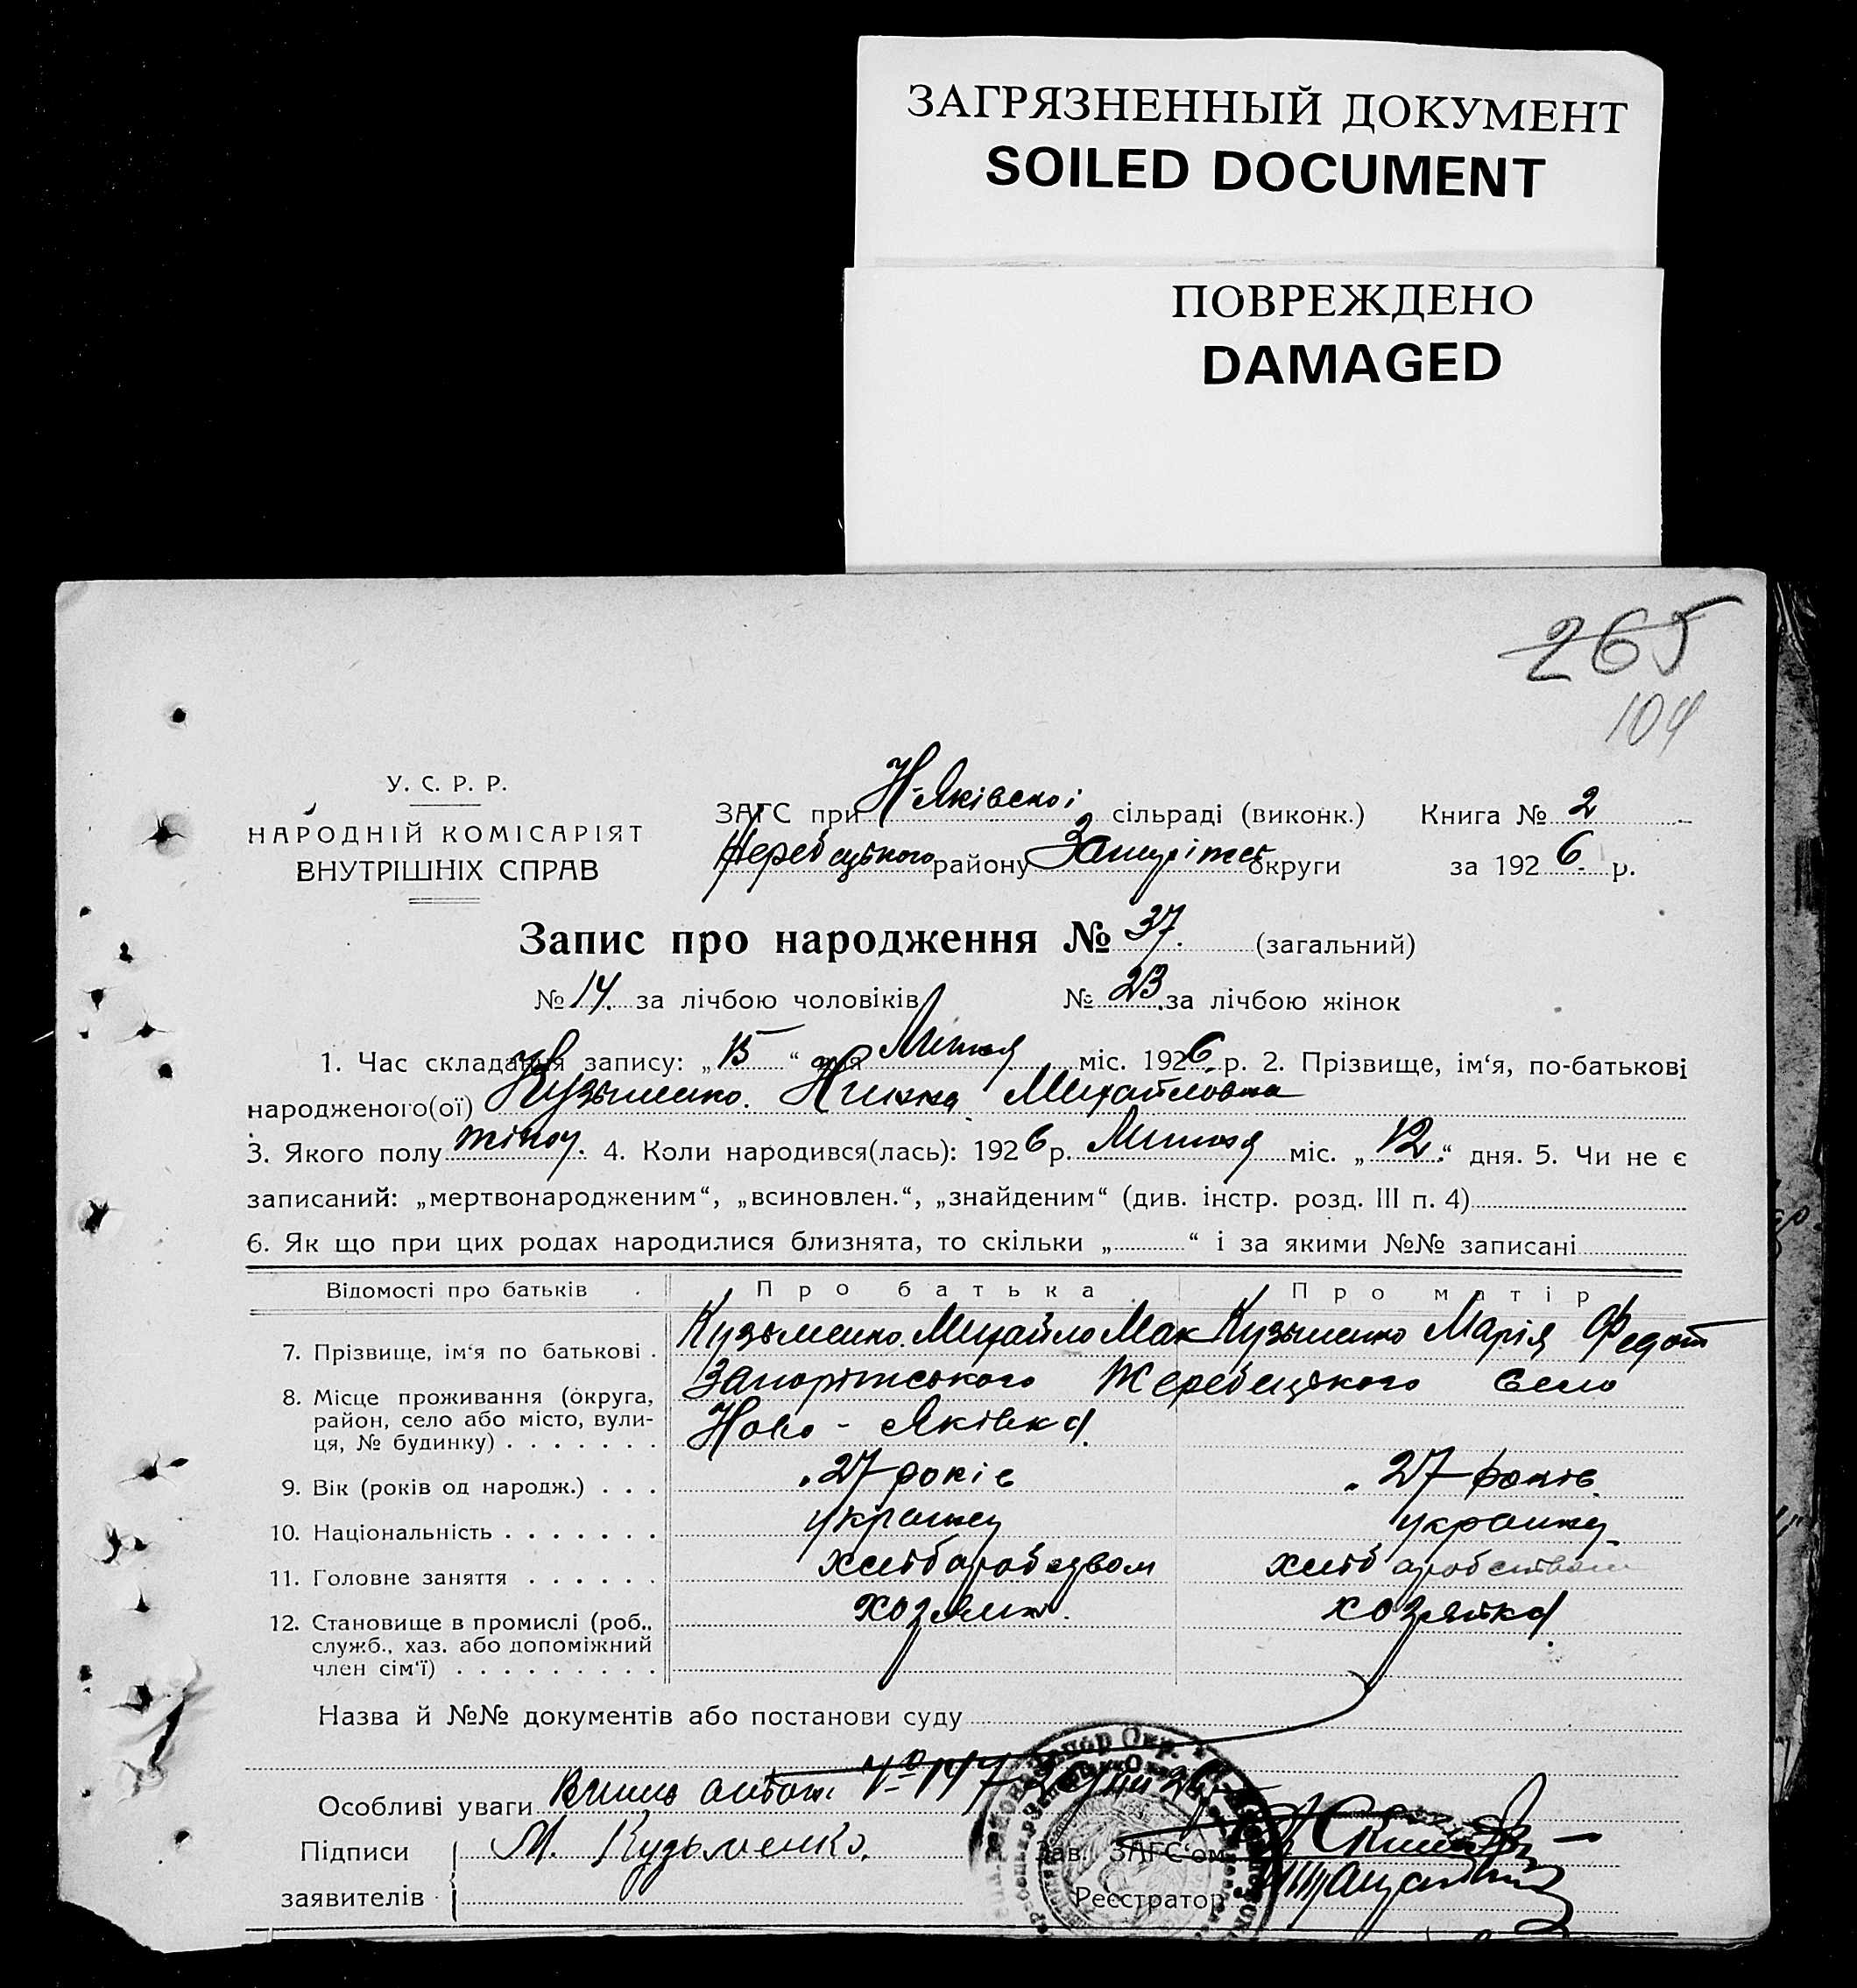 ЗАГРЯЗНЕННЫЙ ДОКУМЕНТ
SOILED DOCUMENT
ПОВРЕЖДЕНО
DAMAGED
265
104
У. С. Р. Р.
НАРОДНІЙ КОМІСАРІЯТ
ВНУТРІШНІХ СПРАВ
ЗАГС при Н-Яківскоі сільраді (виконк.) Книга № 2
Жеребецького району округи за 1926 р.
Запис про народження № 37. (загальний)
№ 14. за лічбою чоловіків № 23. за лічбою жінок
1. Час складання запису: „15“ дня Липня міс. 1926 р. 2. Прізвище, ім‘я, по-батькові
народженого(ої) Кузьменко. Нина Михайловна
3. Якого полу жіноч. 4. Коли народився(лась): 1926 р. Липня міс. „12.“ дня. 5. Чи не є
записаний: „мертвонародженим“, „всиновлен.“, „знайденим“ (див. інстр. розд. III п. 4)
6. Як що при цих родах народилися близнята, то скільки „ “ і за якими №№ записані
Відомості про батьків Про батька Про матір
7. Прізвище, ім‘я по батькові . Кузьменко. Михайло Мак Кузьменко Марія Федот
8. Місце проживання (округа, район, село або місто, вулиця, № будинку) Запоріжського Жеребецького село
Ново - Яківка.
9. Вік (років од народж.) . . . 27 років 27 років.
10. Національність . . . . . . . украінец украинц.
11. Головне заняття . . . . . .
12. Становище в промислі (роб., хозяин. хозяйка.
служб., хаз. або допоміжний
член сім‘ї) . . . . . . . . .
Назва й №№ документів або постанови суду
Особливі уваги
Підписи М. Кузьменко.
Зав. ЗАГС‘ом
заявителів
Реєстратор